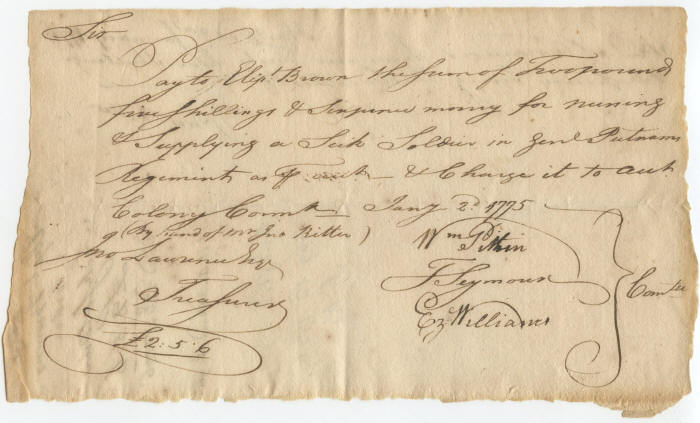 Sir
Pay to Elipt. Brown the sum of Two pounds
five Shillings & Sixpence money for nursing
& Supplying a Sick Soldier in Genl. Putnams
Regiment as & Charge it to
Colony Connt. Jany 2d. 1775
(By hand of Mr Jno Ritter)
Wm Pitkin
Jno Lawrence Esqr
T Seymour
Comtee
Treasurer
Ez Williams
£2:5:6